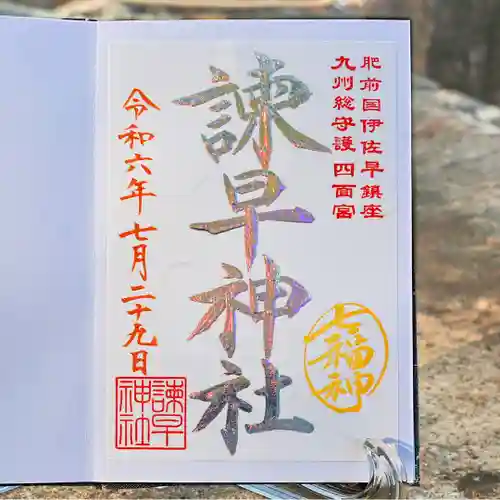 肥前国伊佐早鎮座
九州総守護 四面宮
諫早神社
七福神
令和六年七月二十九日
諫早
神社